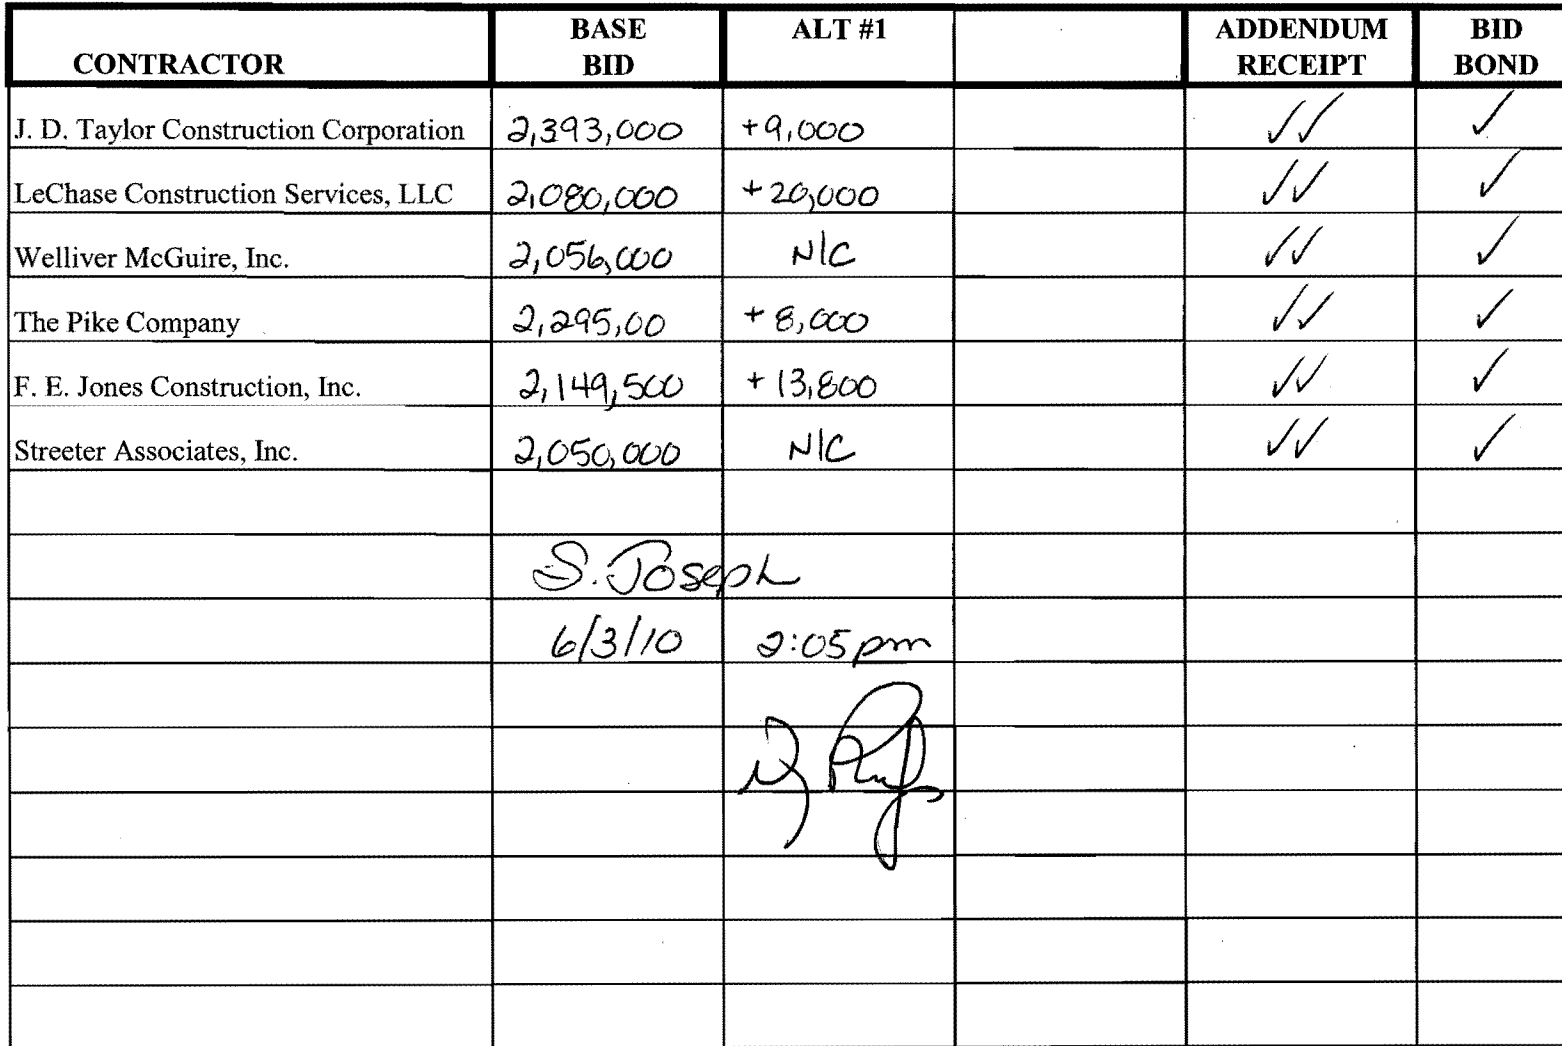 CONTRACTOR BASE BID ALT #1 ADDENDUM RECEIPT BID BOND
J. D. Taylor Construction Corporation 2,393,000 +9,000 ✓✓ ✓
LeChase Construction Services, LLC 2,080,000 +20,000 ✓✓ ✓
Welliver McGuire, Inc. 2,056,000 N/C ✓✓ ✓
The Pike Company 2,295,00 +8,000 ✓✓ ✓
F. E. Jones Construction, Inc. 2,149,500 +13,800 ✓✓ ✓
Streeter Associates, Inc. 2,050,000 N/C ✓✓ ✓
S. Joseph
6/3/10 2:05pm